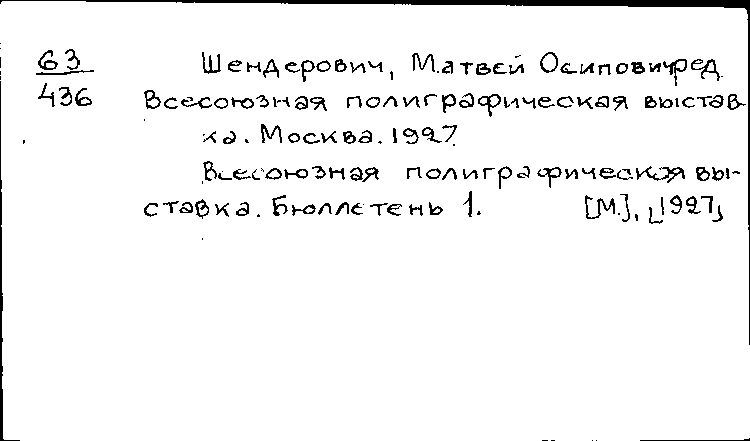 63 Шендерович, Матвей Осипович ред.
436 Всесоюзная полиграфическая выстав-
ка. Москва. 1927.
Всесоюзная полиграфическая вы-
ставка. Бюллетень 1. [М.], [1927]